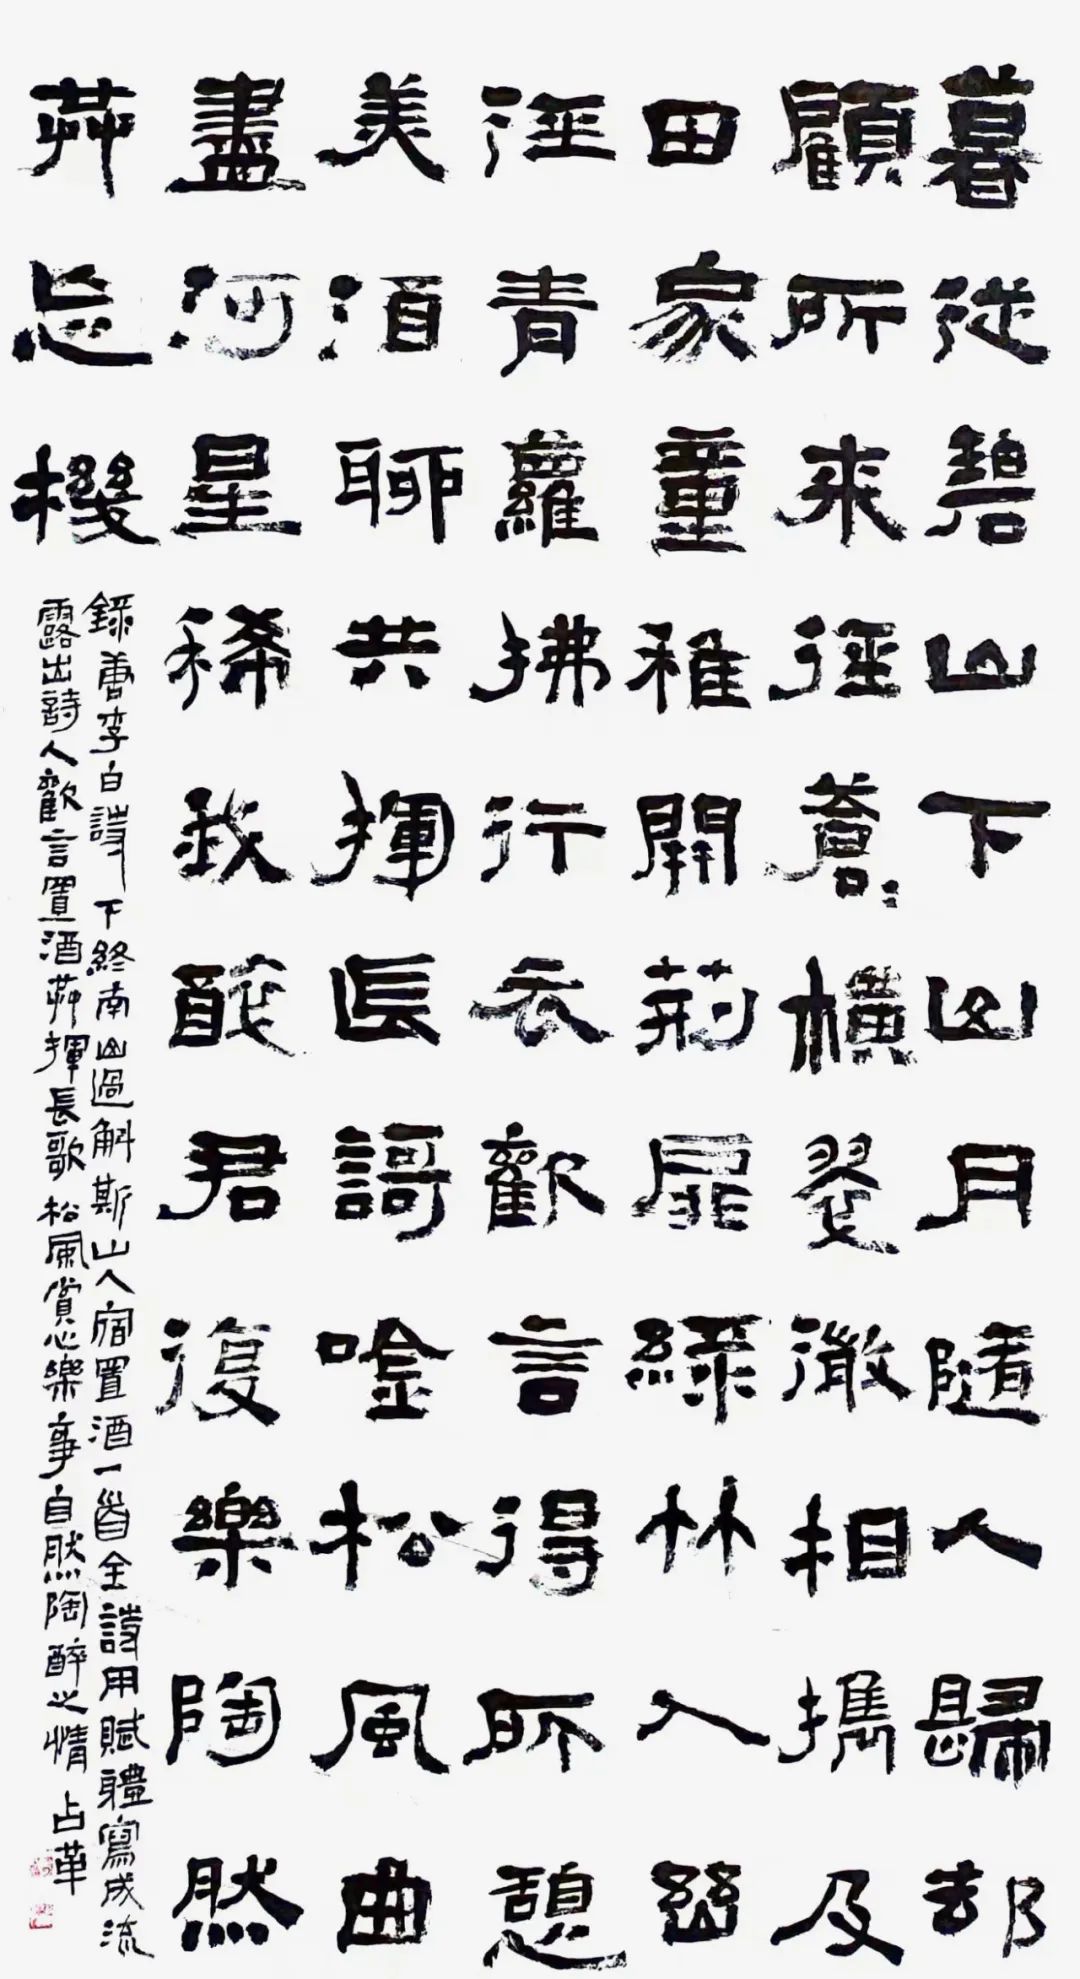 暮從碧山下山月隨人歸却
顧所來徑蒼〻橫翠微相攜及
田家童稚開荊扉綠竹入幽
徑青蘿拂行衣歡言得所憩
美酒聊共揮長謌唫松風曲
盡河星稀我醉君復樂陶然
共忘機
錄唐李白詩 下終南山過斛斯山人宿置酒一首全詩用賦體寫成流
露出詩人歡言置酒共揮長歌松風賞心樂事自然陶醉之情 占革